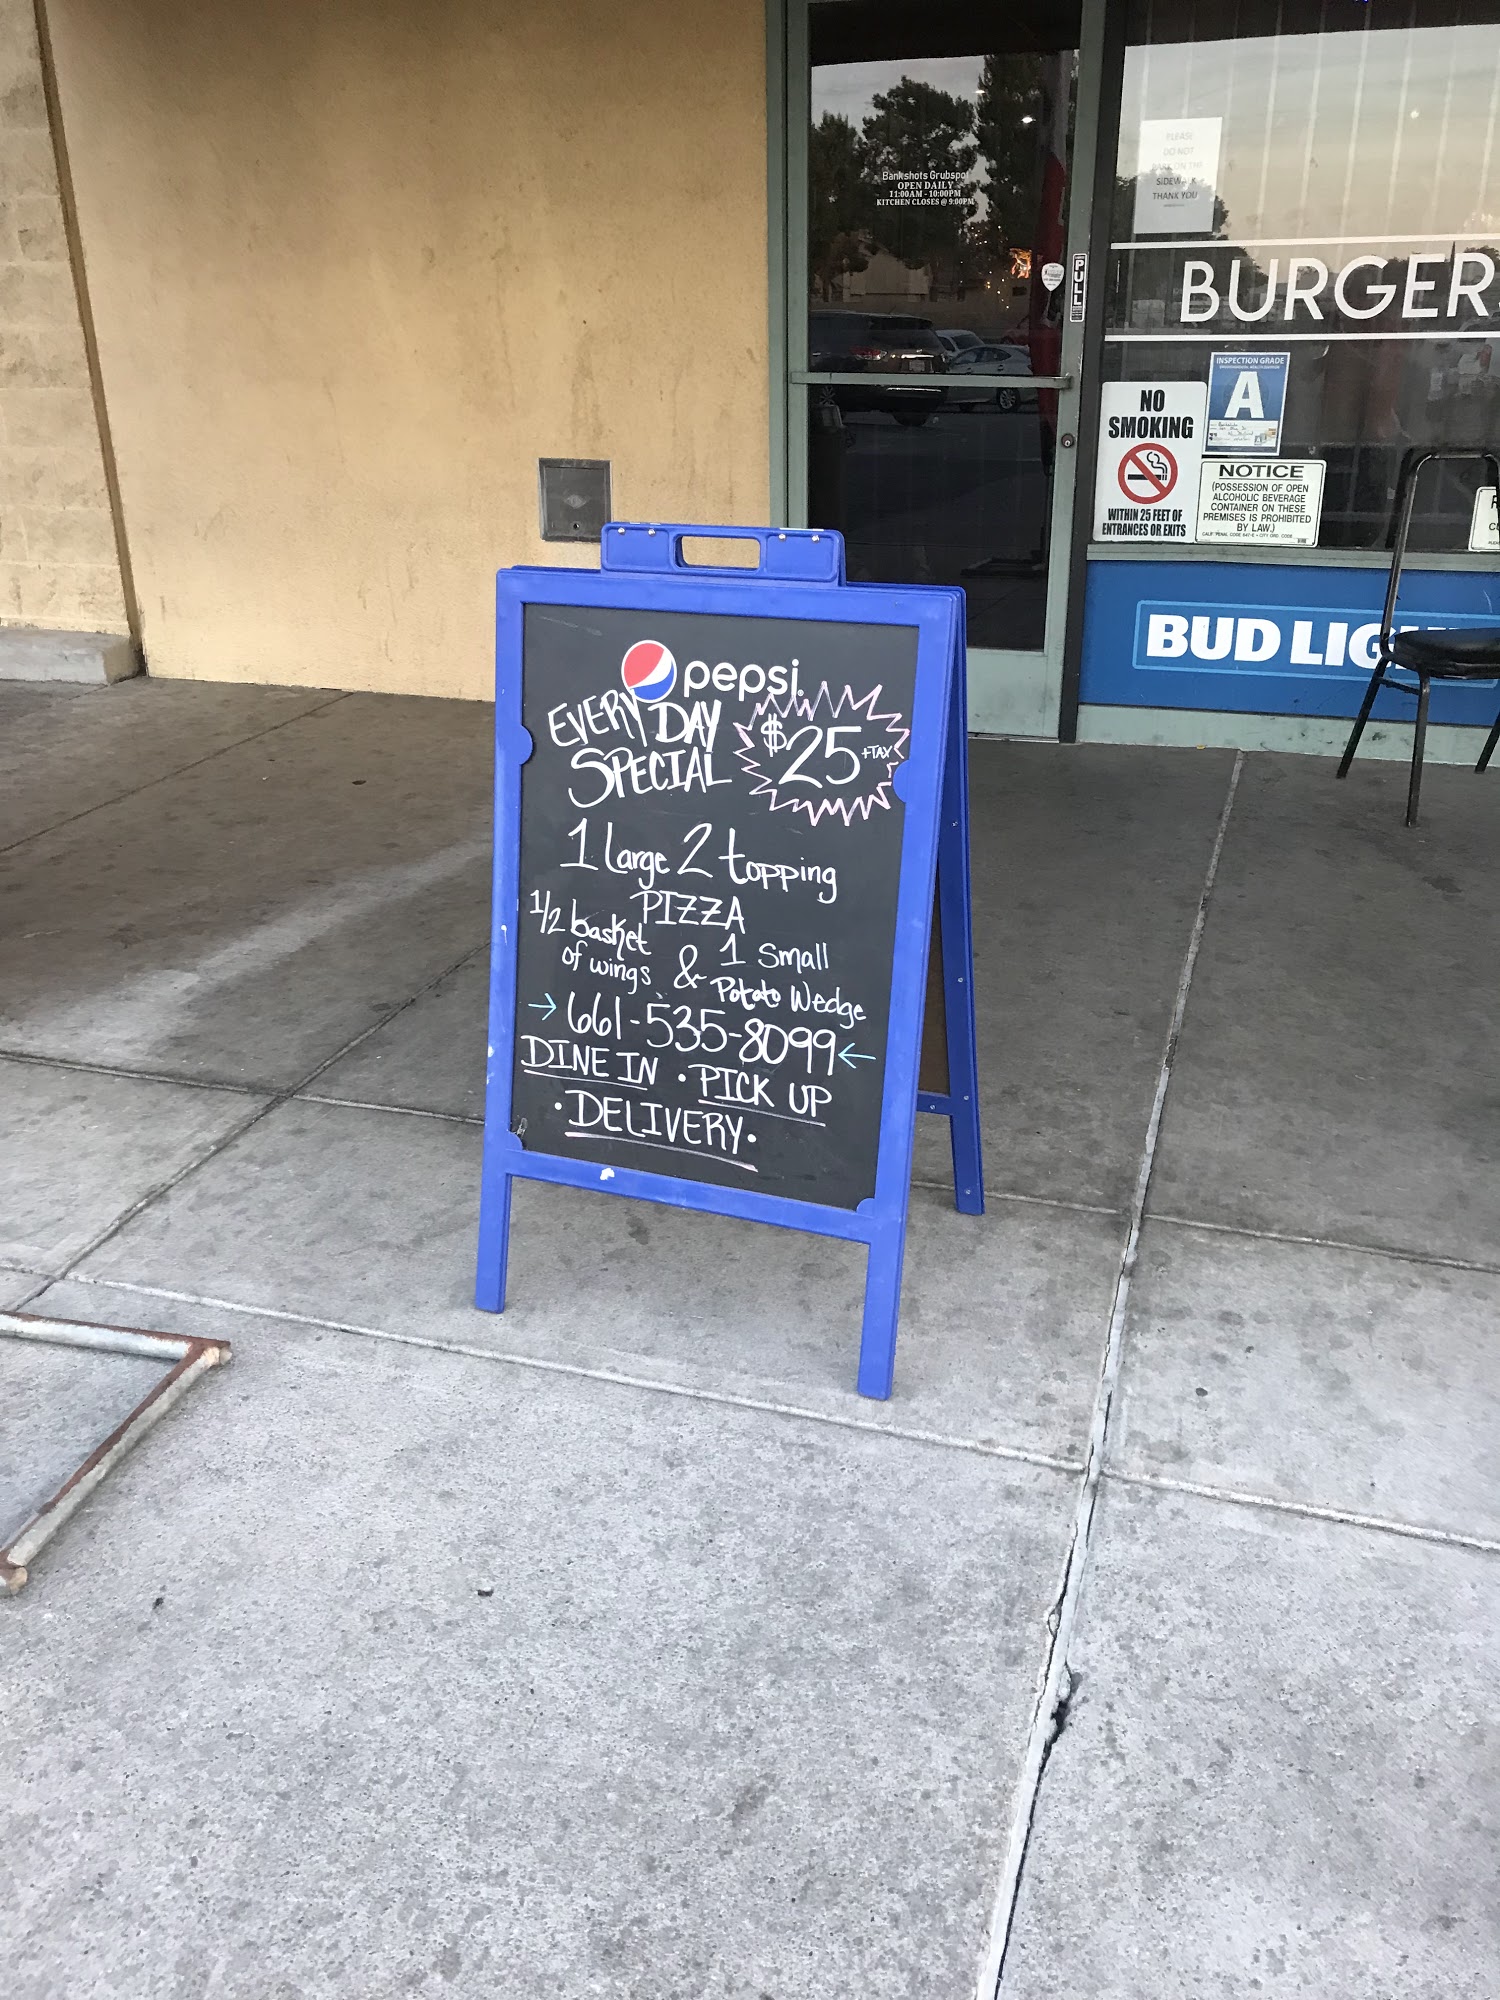 Bankshots Grubspot
OPEN DAILY
11:00AM - 10:00PM
KITCHEN CLOSES @ 9:00PM
PULL
PLEASE
DO NOT
PARK ON THE
SIDEWALK
THANK YOU
BURGER
INSPECTION GRADE
A
NO
SMOKING
WITHIN 25 FEET OF
ENTRANCES OR EXITS
NOTICE
(POSSESSION OF OPEN
ALCOHOLIC BEVERAGE
CONTAINER ON THESE
PREMISES IS PROHIBITED
BY LAW.)
CALIF. PENAL CODE 647-E • CITY ORD. CODE
BUD LIG
pepsi
EVERY DAY
SPECIAL
$25 +TAX
1 Large 2 topping
PIZZA
1/2 basket
of wings
& 1 Small
Potato Wedge
→ 661-535-8099 ←
DINE IN • PICK UP
• DELIVERY •